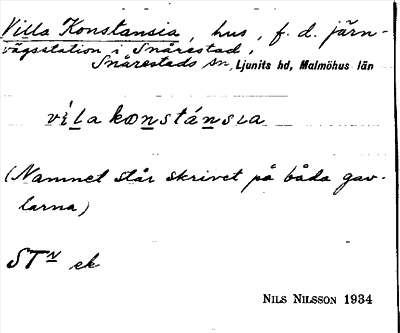 Villa Konstansia, hus, f. d. järn-
vägsstation i Snårestad,
Snårestads sn, Ljunits hd, Malmöhus län
vìla konstánsıa
(Namnet står skrivet på båda gav-
larna)
STN ek
NILS NILSSON 1934